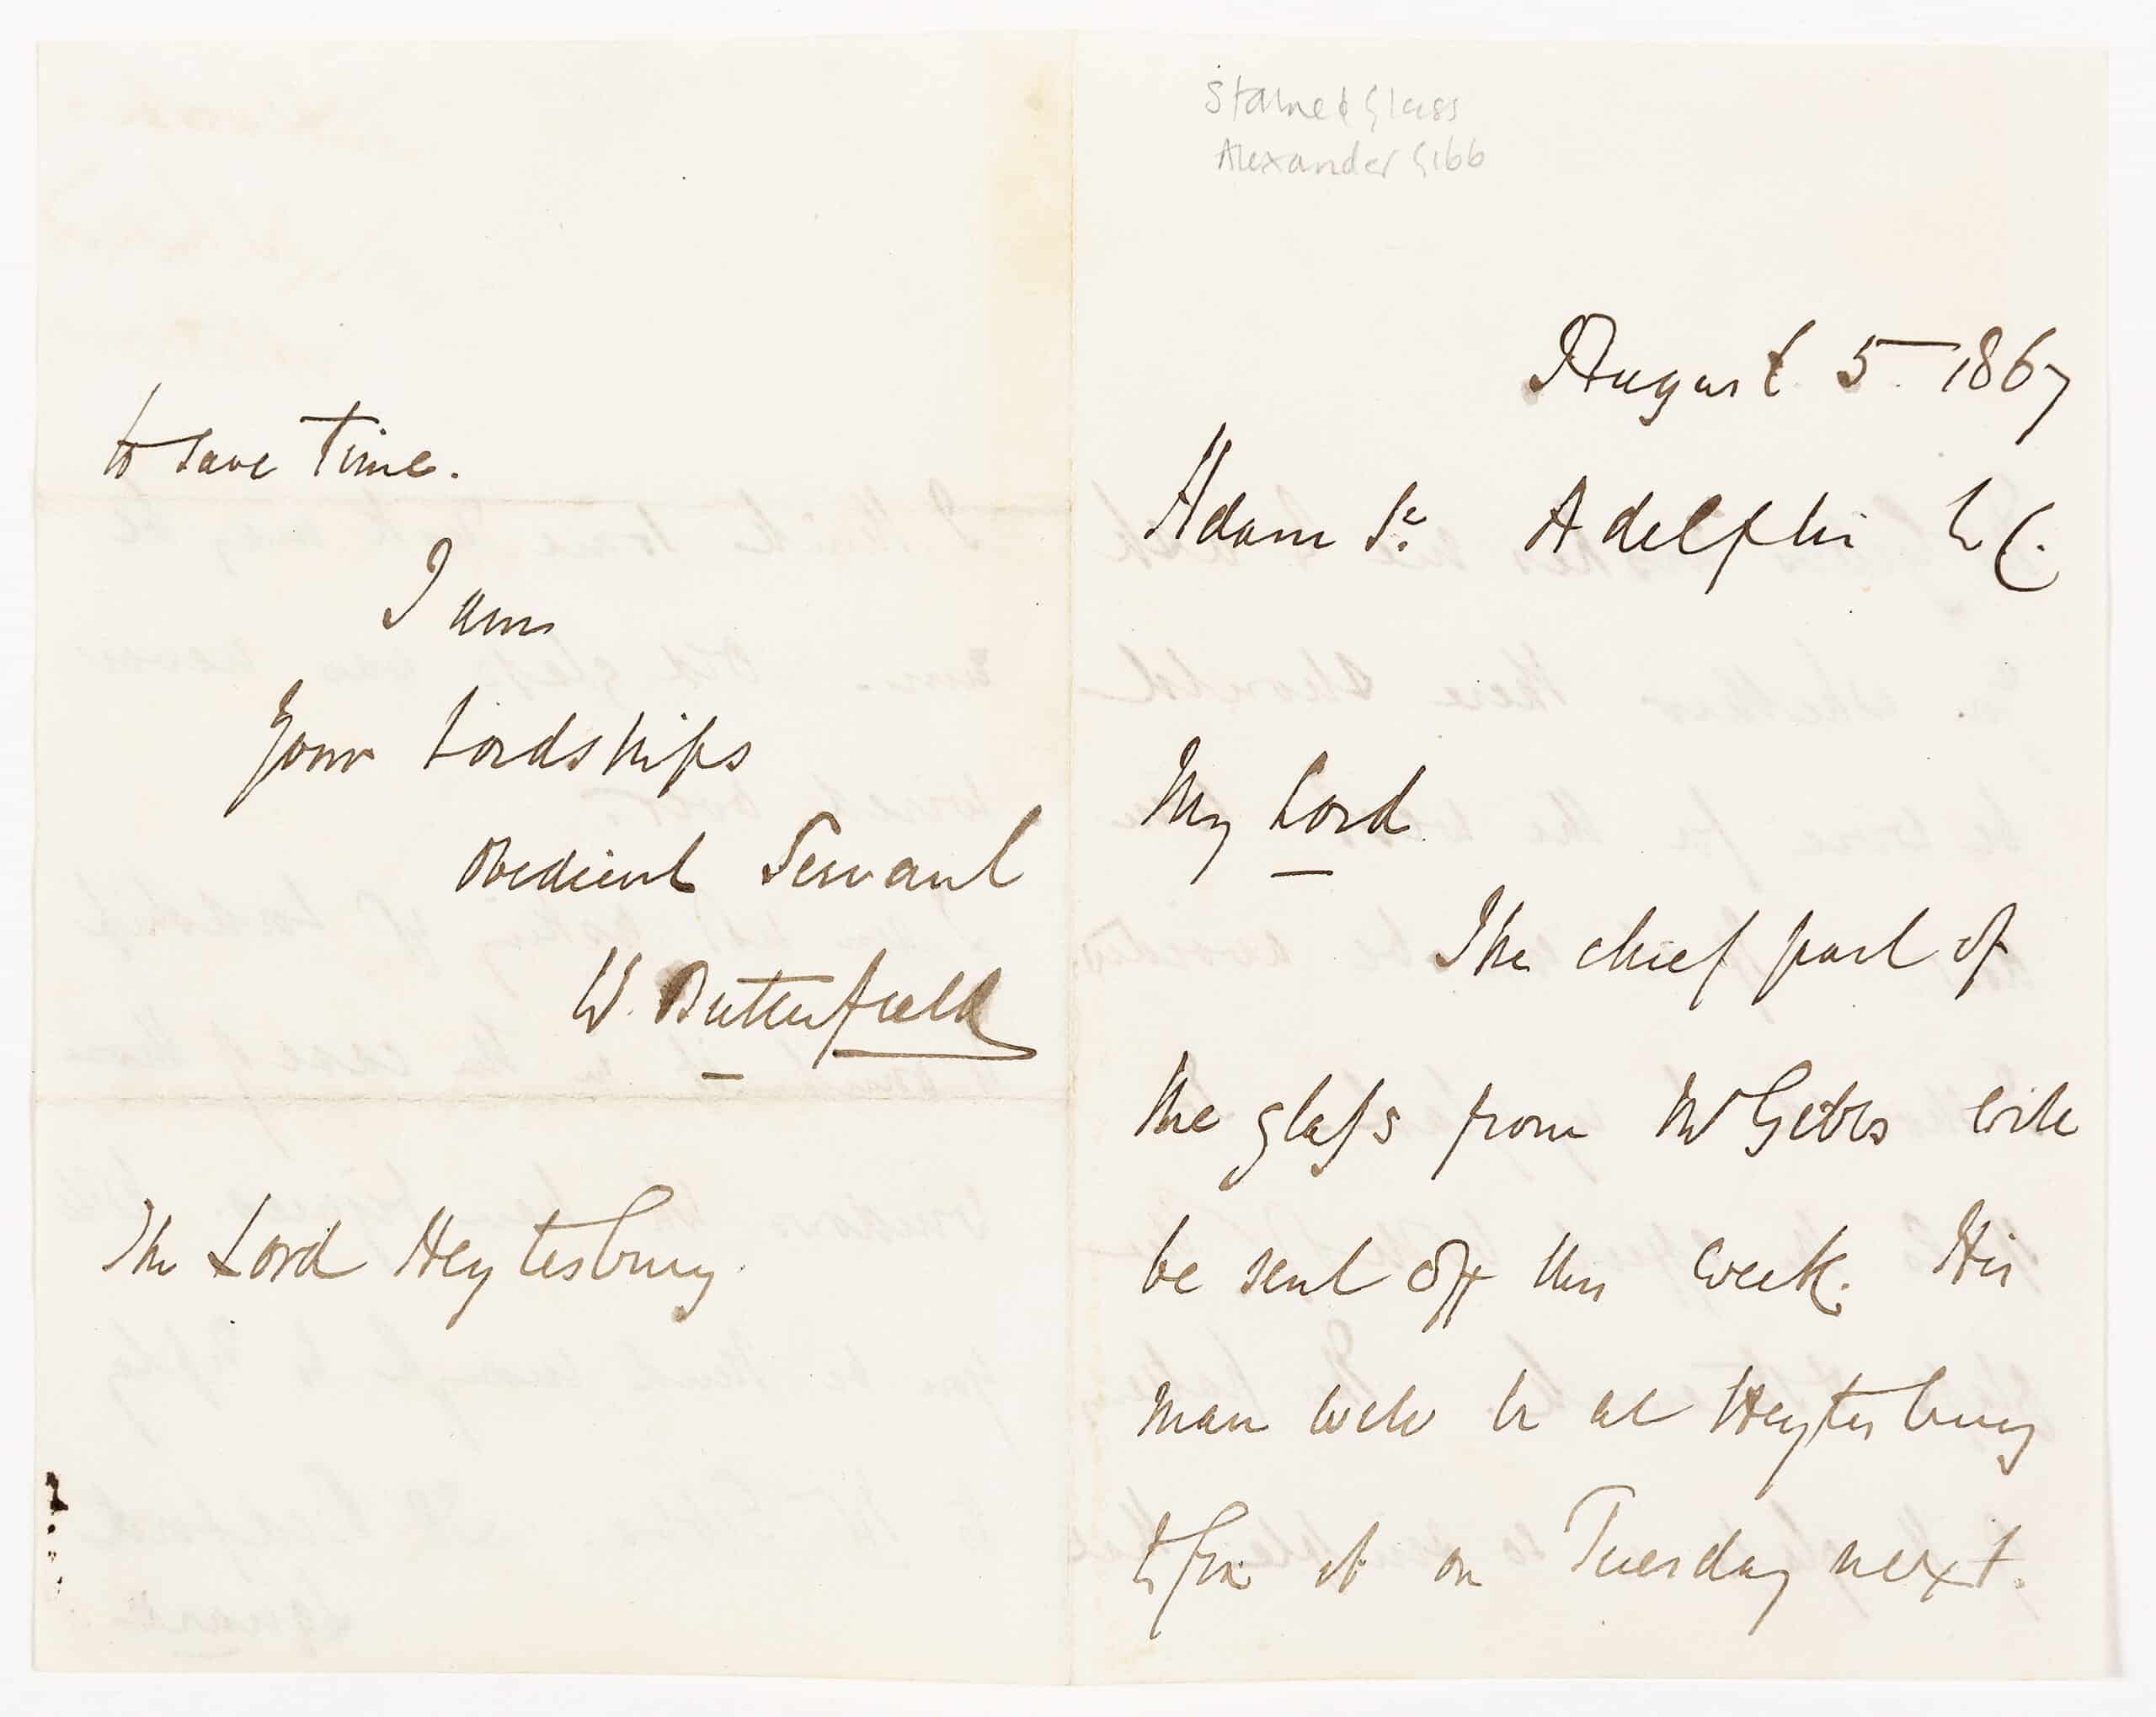 Stained Glass
Alexander Gibb
August 5 1867
Adam St. Adelphi W C.
My Lord
The chief part of
the glass from Mr Gibbs will
be sent off this week. His
man will be at Heytesbury
to fix it on Tuesday next.
to save time.
I am
Your Lordships
Obedient Servant
W. Butterfield
The Lord Heytesbury